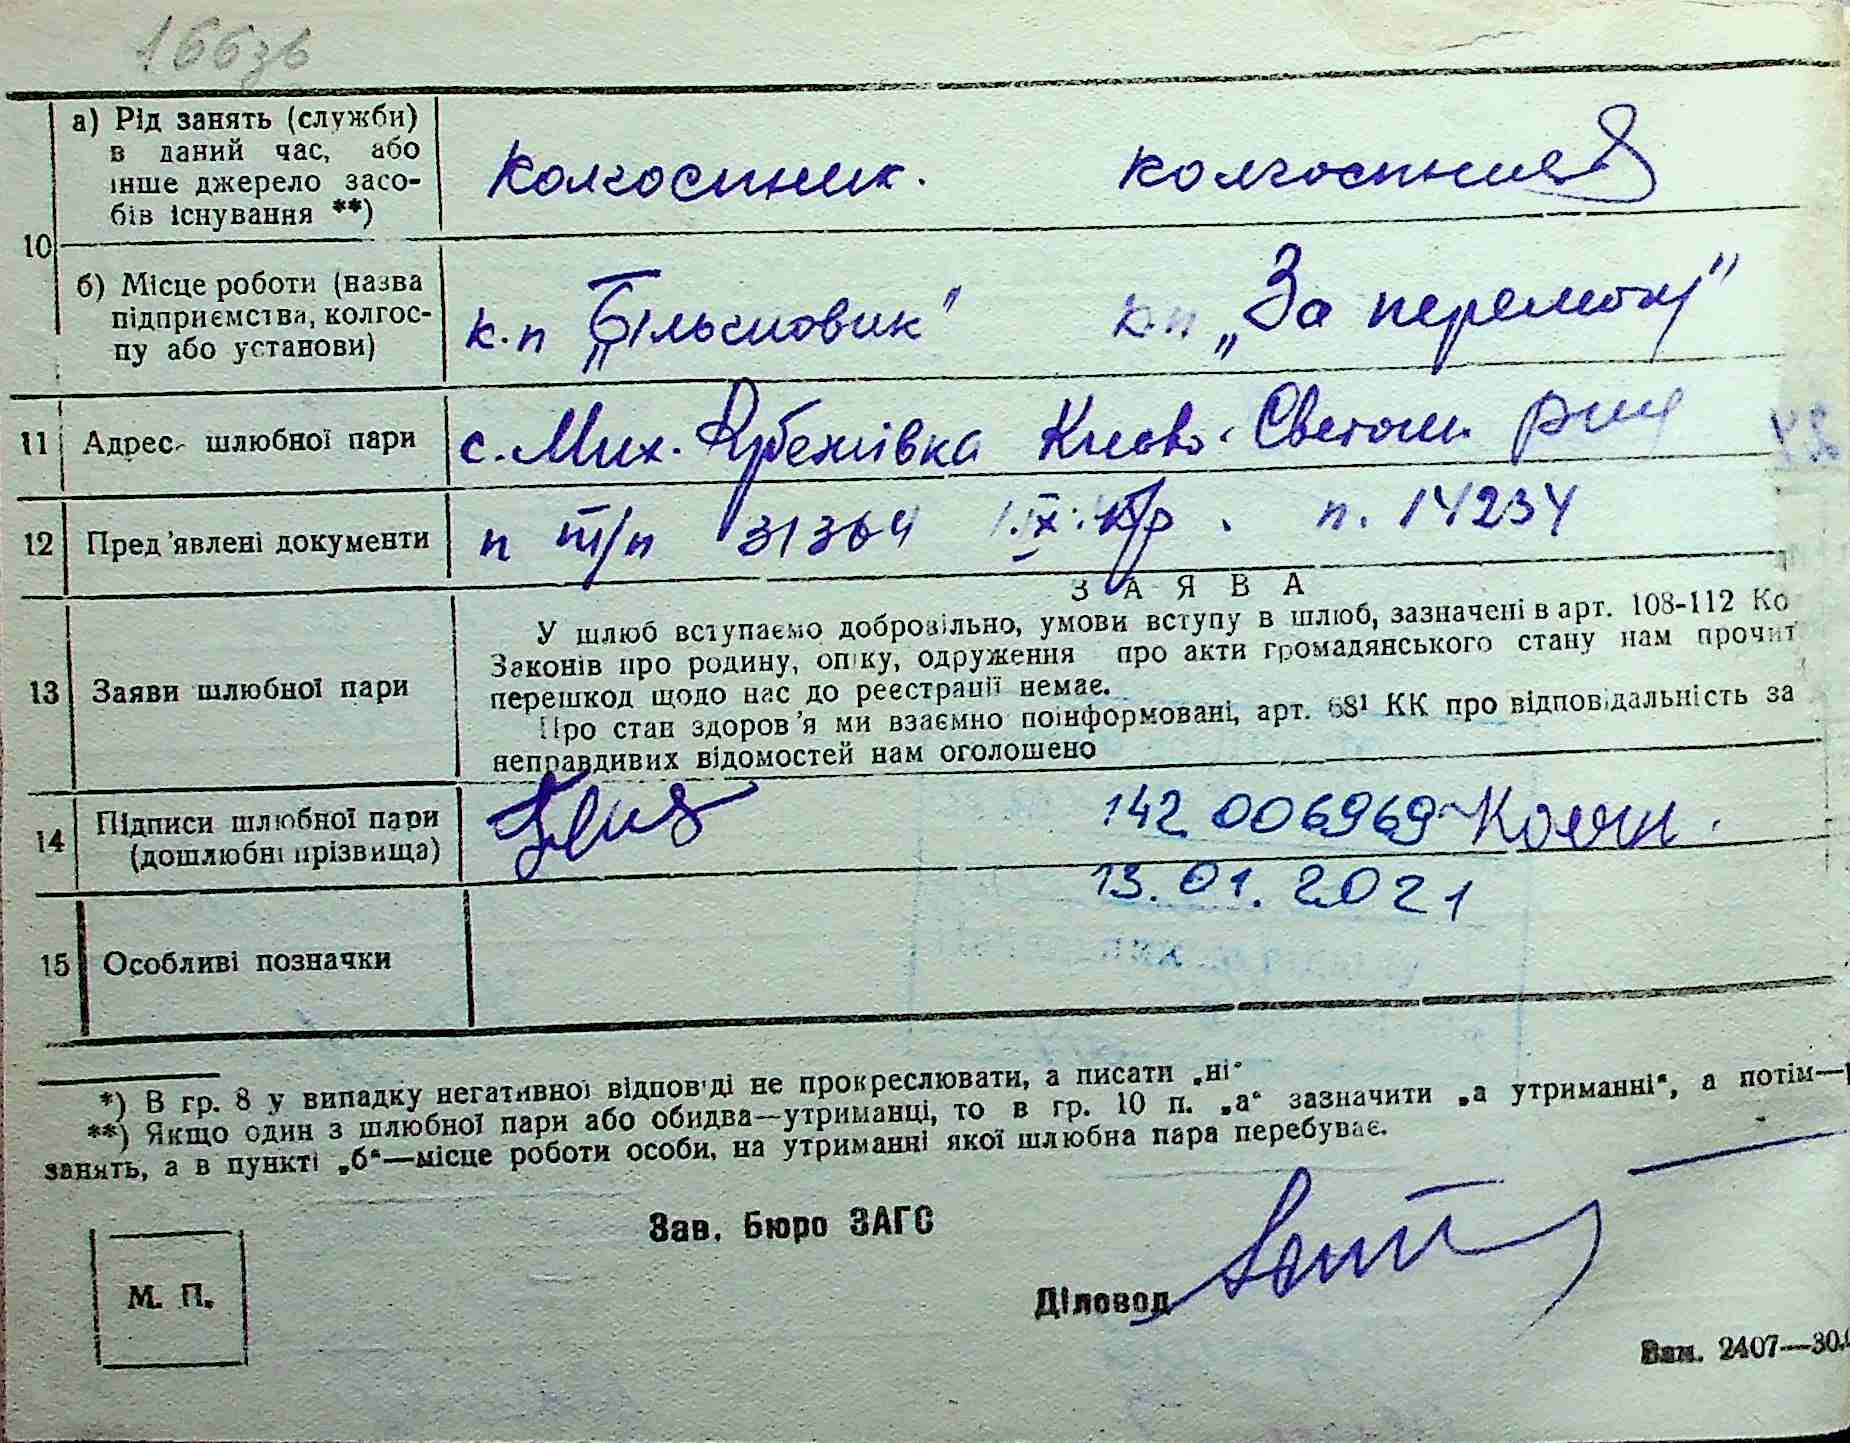 166зв
а) Рід занять (служби)
в даний час, або
інше джерело засо-
бів існування **)
колгоспник. колгоспниця
10
б) Місце роботи (назва
підприємства, колгос-
пу або установи)
к.п „Більшовик" к.п „За перемогу"
11 Адрес шлюбної пари с. Мих. Рубежівка Києво-Святош.
12 Пред'явлені документи п т/п 31364 п. 14234
ЗАЯВА
13 Заяви шлюбної пари
У шлюб вступаємо добровільно, умови вступу в шлюб, зазначені в арт. 108-112 Ко
Законів про родину, опіку, одруження про акти громадянського стану нам прочит
перешкод щодо нас до реєстрації немає.
Про стан здоров'я ми взаємно поінформовані, арт. 68¹ КК про відповідальність за
неправдивих відомостей нам оголошено
14 Підписи шлюбної пари
(дошлюбні прізвища)
142 006969
13.01.2021
15 Особливі позначки
*) В гр. 8 у випадку негативної відповіді не прокреслювати, а писати „ні"
**) Якщо один з шлюбної пари або обидва—утриманці, то в гр. 10 п. „а" зазначити „а утриманні", а потім—
занять, а в пункті „б"—місце роботи особи, на утриманні якої шлюбна пара перебуває.
Зав. бюро ЗАГС
М. П.
Діловод
Зам. 2407—30.